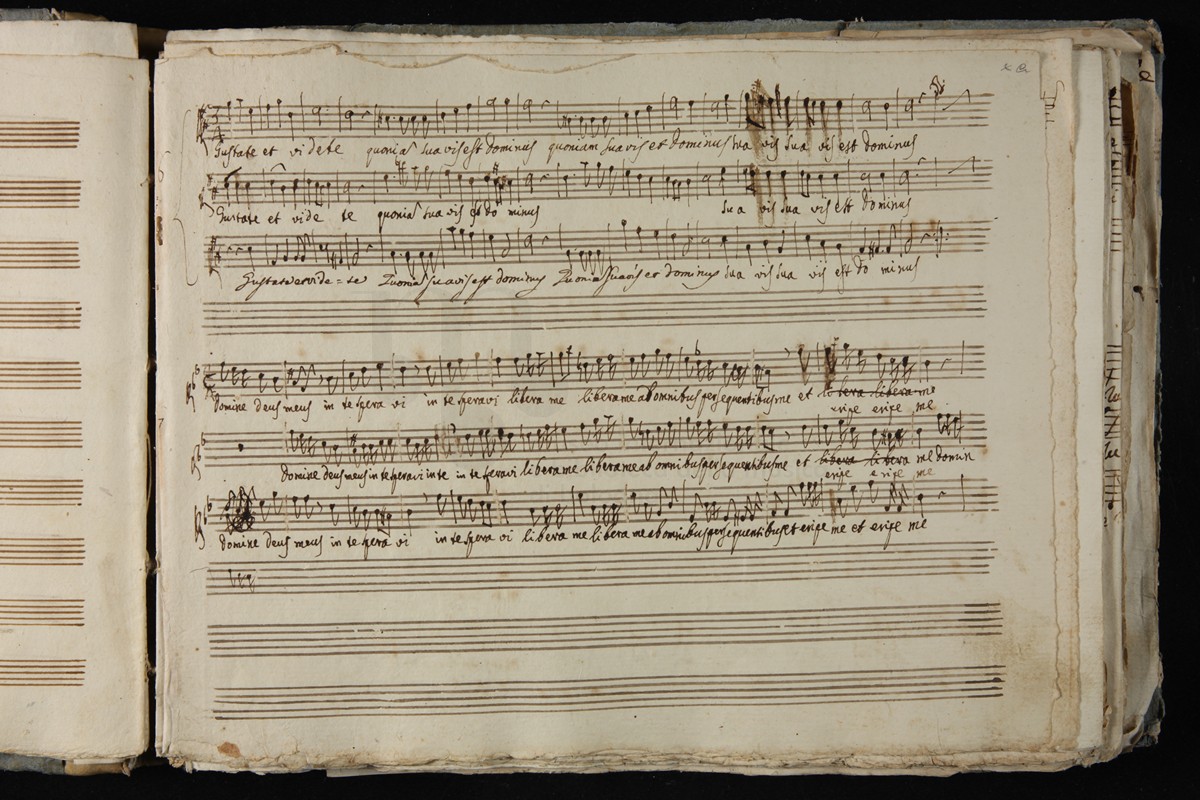 Gustate et videte quonia suavis est dominus quoniam suavis et dominus sua vis sua vis est dominus
Gustate et vide te quonia sua vis est do minus sua vis sua vis est dominus
Gustate et vide = te Quonia suavis est dominus Quonia suavis et dominus sua vis sua vis est do minus
domine deus meus in te spera vi in te speravi libera me libera me ab omnibus persequentibus me et libera libera me
eripe eripe me
domine deus meus in te speravi in te in te speravi libera me libera me ab omnibus persequentibus me et libera libera me domin
eripe eripe me
domine deus meus in te spera vi in te spera vi libera me libera me ab omnibus persequentibus et eripe me et eripe me